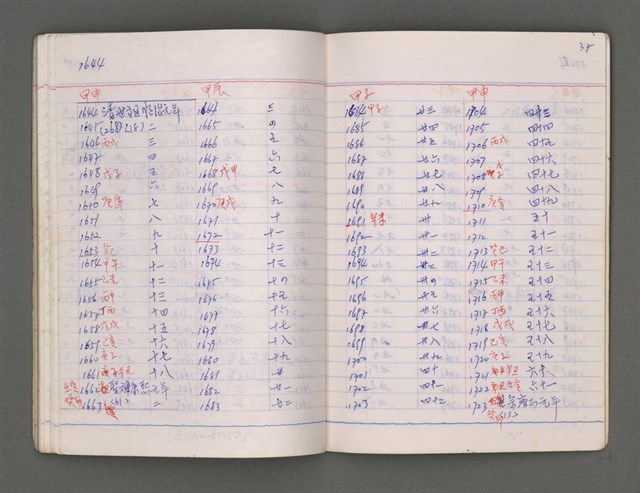 1644
甲申
1644 清世祖順治元年
1645 (268)(18) 二
1646 丙戌 三
1647 四
1648 戊子 五
1649 六
1650 庚寅 七
1651 八
1652 九
1653 癸巳 十
1654 甲午 十一
1655 乙未 十二
1656 丙申 十三
1657 丁酉 十四
1658 戊戌 十五
1659 己亥 十六
1660 庚子 十七
1661 十八
1662 聖祖康熙元年
1663 (61) 二
甲辰
1664 三
1665 四
1666 五
1667 六
1668 戊申 七
1669 八
1670 庚戌 九
1671 十
1672 十一
1673 十二
1674 十三
1675 十四
1676 十五
1677 十六
1678 十七
1679 十八
1680 十九
1681
1682 廿一
1683
38
甲子
1684 甲子 廿三
1685 廿四
1686 廿五
1687 廿六
1688 廿七
1689 廿八
1690 廿九
1691 辛未 卅
1692 卅一
1693 卅二
1694 卅三
1695 卅四
1696 卅五
1697 卅六
1698 卅七
1699 卅八
1700 卅九
1701 四十
1702 四十一
1703 四十二
甲申
1704 四十三
1705 四四
1706 丙戌 四五
1707 四六
1708 戊子 四七
1709 四八
1710 庚寅 四九
1711 五十
1712 五一
1713 癸巳 五十二
1714 甲午 五十三
1715 乙未 五十四
1716 丙申 五十五
1717 丁酉 五十六
1718 戊戌 五十七
1719 己亥 五十八
1720 庚子 五十九
1721 辛丑 六十
1722 六十一
1723 世宗雍正元年